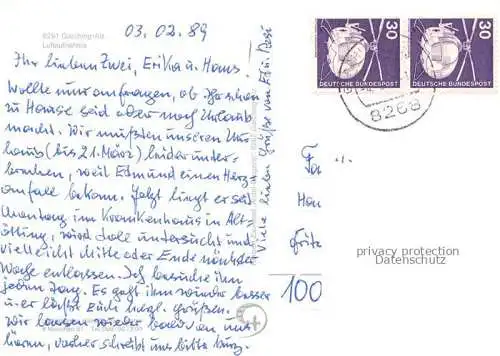 03.02.89
8261 Garching-Alz
Luftaufnahme
Ihr lieben Zwei, Erika u. Hans.
Wollte nur anfragen, ob Ihr schon
zu Hause seid oder noch Urlaub
macht. Wir mußten unseren Ur-
laub (bis 21. März) leider unter-
brechen, weil Edmund einen Herz-
anfall bekam. Jetzt liegt er seit
Montag im Krankenhaus in Alt-
ötting, wird doll untersucht und
vielleicht Mitte oder Ende nächster
Woche entlassen. Ich besuche ihn
jeden Tag. Es geht ihm wieder besser
u. er läßt Euch herzl. grüßen.
Wir lassen wieder bald von uns
hören, vorher schreibt uns bitte
Viele liebe Grüße von
30
30
DEUTSCHE BUNDESPOST
DEUTSCHE BUNDESPOST
8268
Fa
Han
Fritz
100
privacy protection
Datenschutz